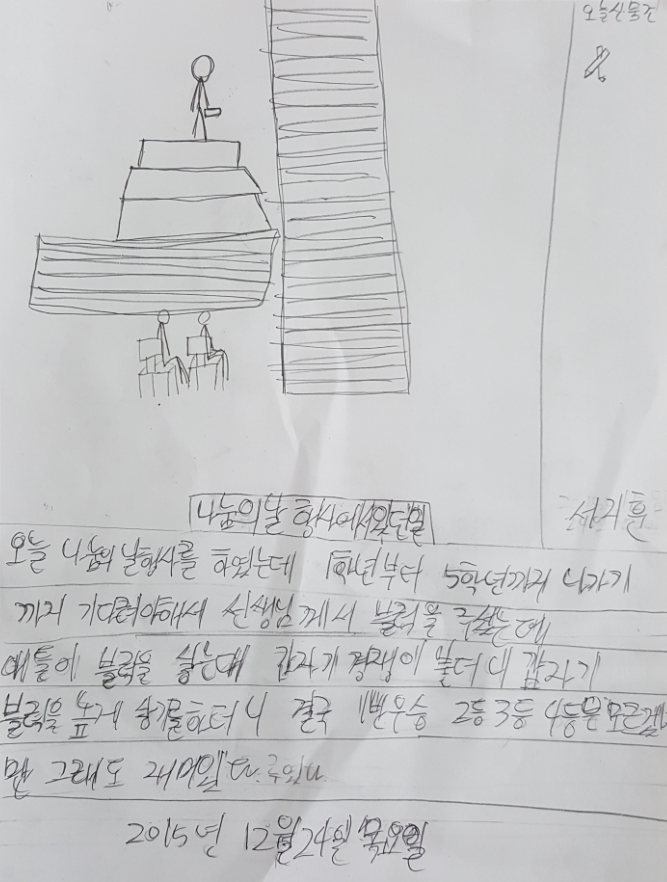 오늘산물건
나눔의날 행사에서있던일
서지훈
오늘 나눔의 날행사를 하였는데 1학년부터 5학년까지 나가기
까지 기다려야해서 선생님께서 블럭을 주셨는데
애들이 블럭을 쌓는데 갑자기 경쟁이 붙더니 갑자기
블럭을 높게 쌓기를하더니 결국 1빤우승 2등3등 4등은 모르겠
만 그래도 재미있
2015년 12월24일 목요일